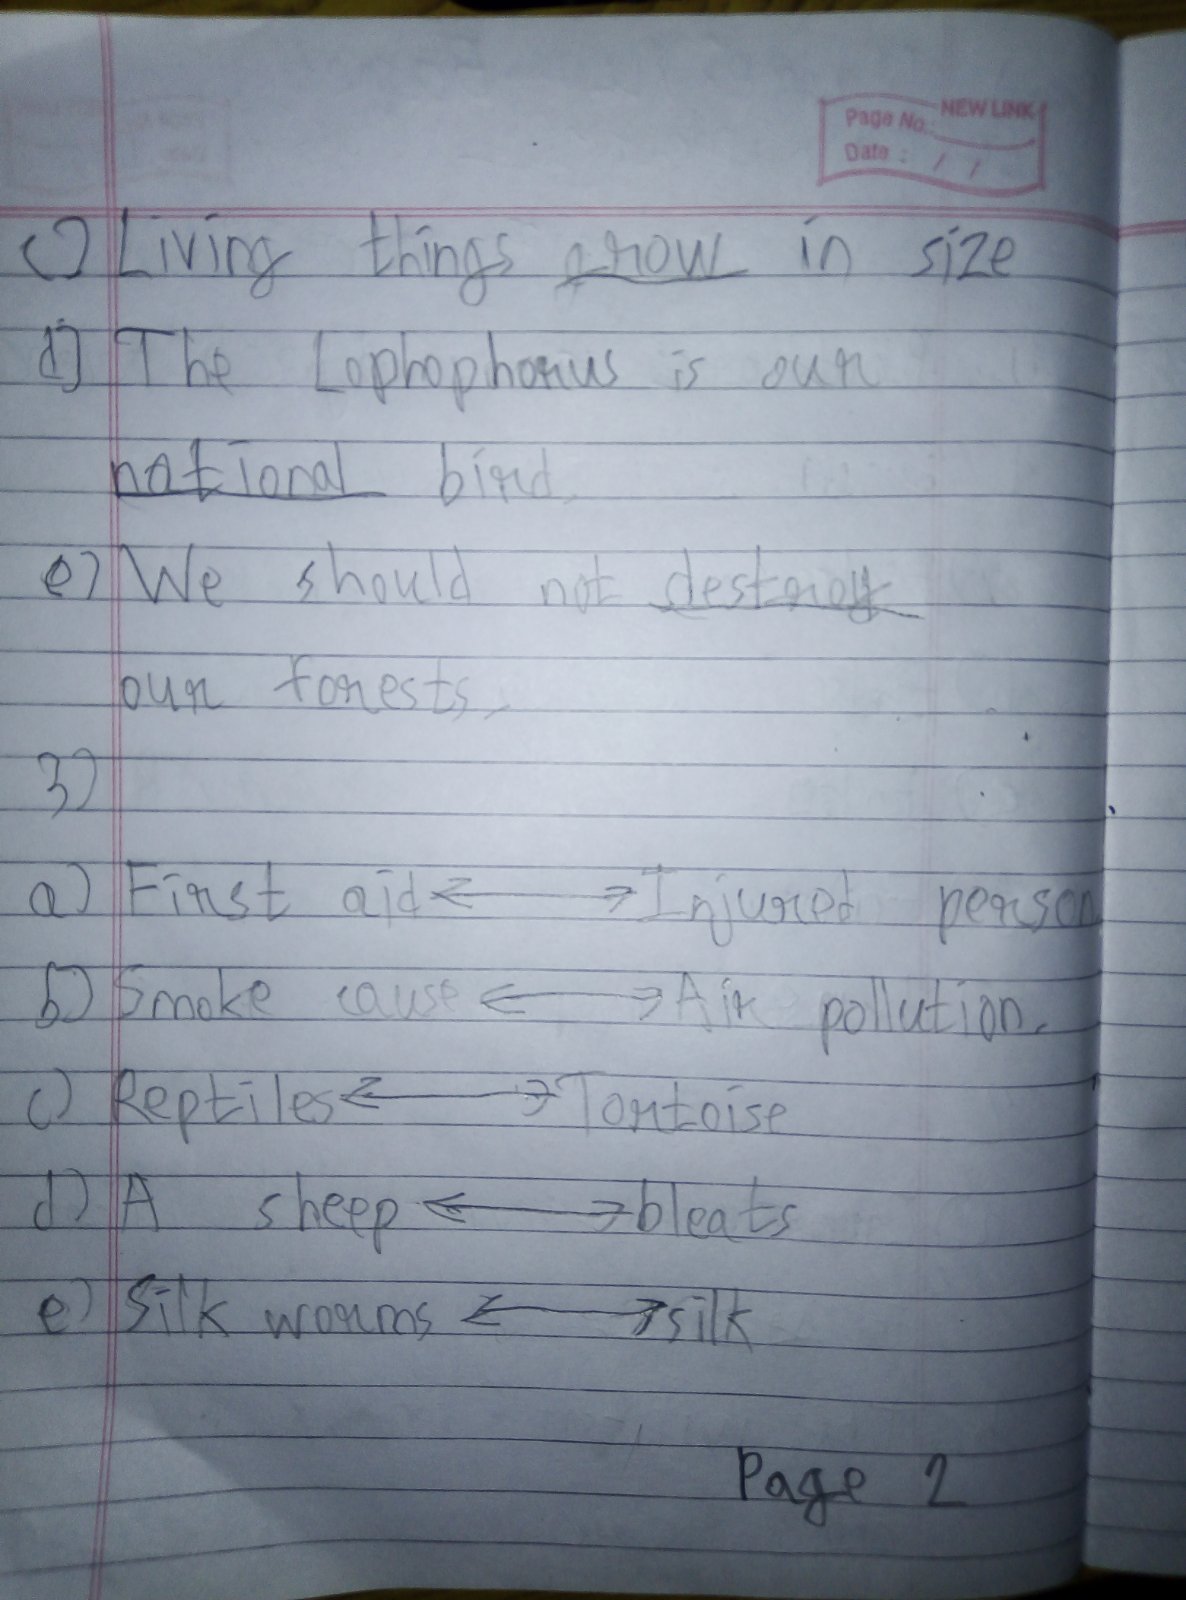 NEW LINK
Page No.:
Date : / /
c) Living things grow in size
d) The Lophophorus is our
national bird.
e) We should not destroy
our forests.
3)
a) First aid <—> Injured person
b) Smoke cause <—> Air pollution.
c) Reptiles <—> Tortoise
d) A sheep <—> bleats
e) Silk worms <—> silk
Page 2